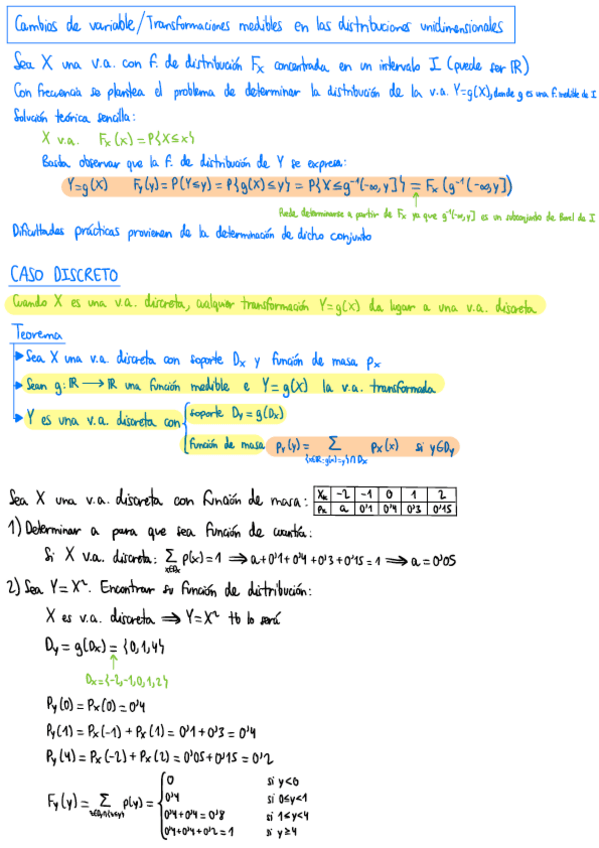 Cambios de variable/Transformaciones medibles en las distribuciones unidimensionales
Sea X una v.a. con f. de distribución F_X concentrada en un intervalo I (puede ser ℝ)
Con frecuencia se plantea el problema de determinar la distribución de la v.a. Y=g(X), donde g es una f. medible de I
Solución teórica sencilla:
X v.a. F_X(x)=P{X≤x}
Basta observar que la f. de distribución de Y se expresa:
Y=g(X) F_Y(y)=P(Y≤y)=P{g(X)≤y}=P{X≤g⁻¹(-∞,y]}=F_X(g⁻¹(-∞,y])
↑
Puede determinarse a partir de F_X ya que g⁻¹(-∞,y] es un subconjunto de Borel de I
Dificultades prácticas provienen de la determinación de dicho conjunto
CASO DISCRETO
Cuando X es una v.a. discreta, cualquier transformación Y=g(X) da lugar a una v.a. discreta
Teorema
Sea X una v.a. discreta con soporte D_X y función de masa p_X
Sean g: ℝ → ℝ una función medible e Y=g(X) la v.a. transformada
Y es una v.a. discreta con { soporte D_Y=g(D_X)
función de masa p_Y(y)= ∑_{{x∈ℝ:g(x)=y}∩D_X} p_X(x) si y∈D_Y
Sea X una v.a. discreta con función de masa: X_k -2 -1 0 1 2
P_X a 0'1 0'4 0'3 0'15
1) Determinar a para que sea función de cuantía:
Si X v.a. discreta: ∑_{x∈D_X} p(x)=1 ⟹ a+0'1+0'4+0'3+0'15=1 ⟹ a=0'05
2) Sea Y=X². Encontrar su función de distribución:
X es v.a. discreta ⟹ Y=X² tb lo será
D_Y = g(D_X) = {0,1,4}
↑
D_X={-2,-1,0,1,2}
P_Y(0) = P_X(0) = 0'4
P_Y(1) = P_X(-1) + P_X(1) = 0'1 + 0'3 = 0'4
P_Y(4) = P_X(-2) + P_X(2) = 0'05 + 0'15 = 0'2
F_Y(y) = ∑ p(y) = { 0 si y<0
0'4 si 0≤y<1
0'4+0'4=0'8 si 1≤y<4
0'4+0'4+0'2=1 si y≥4